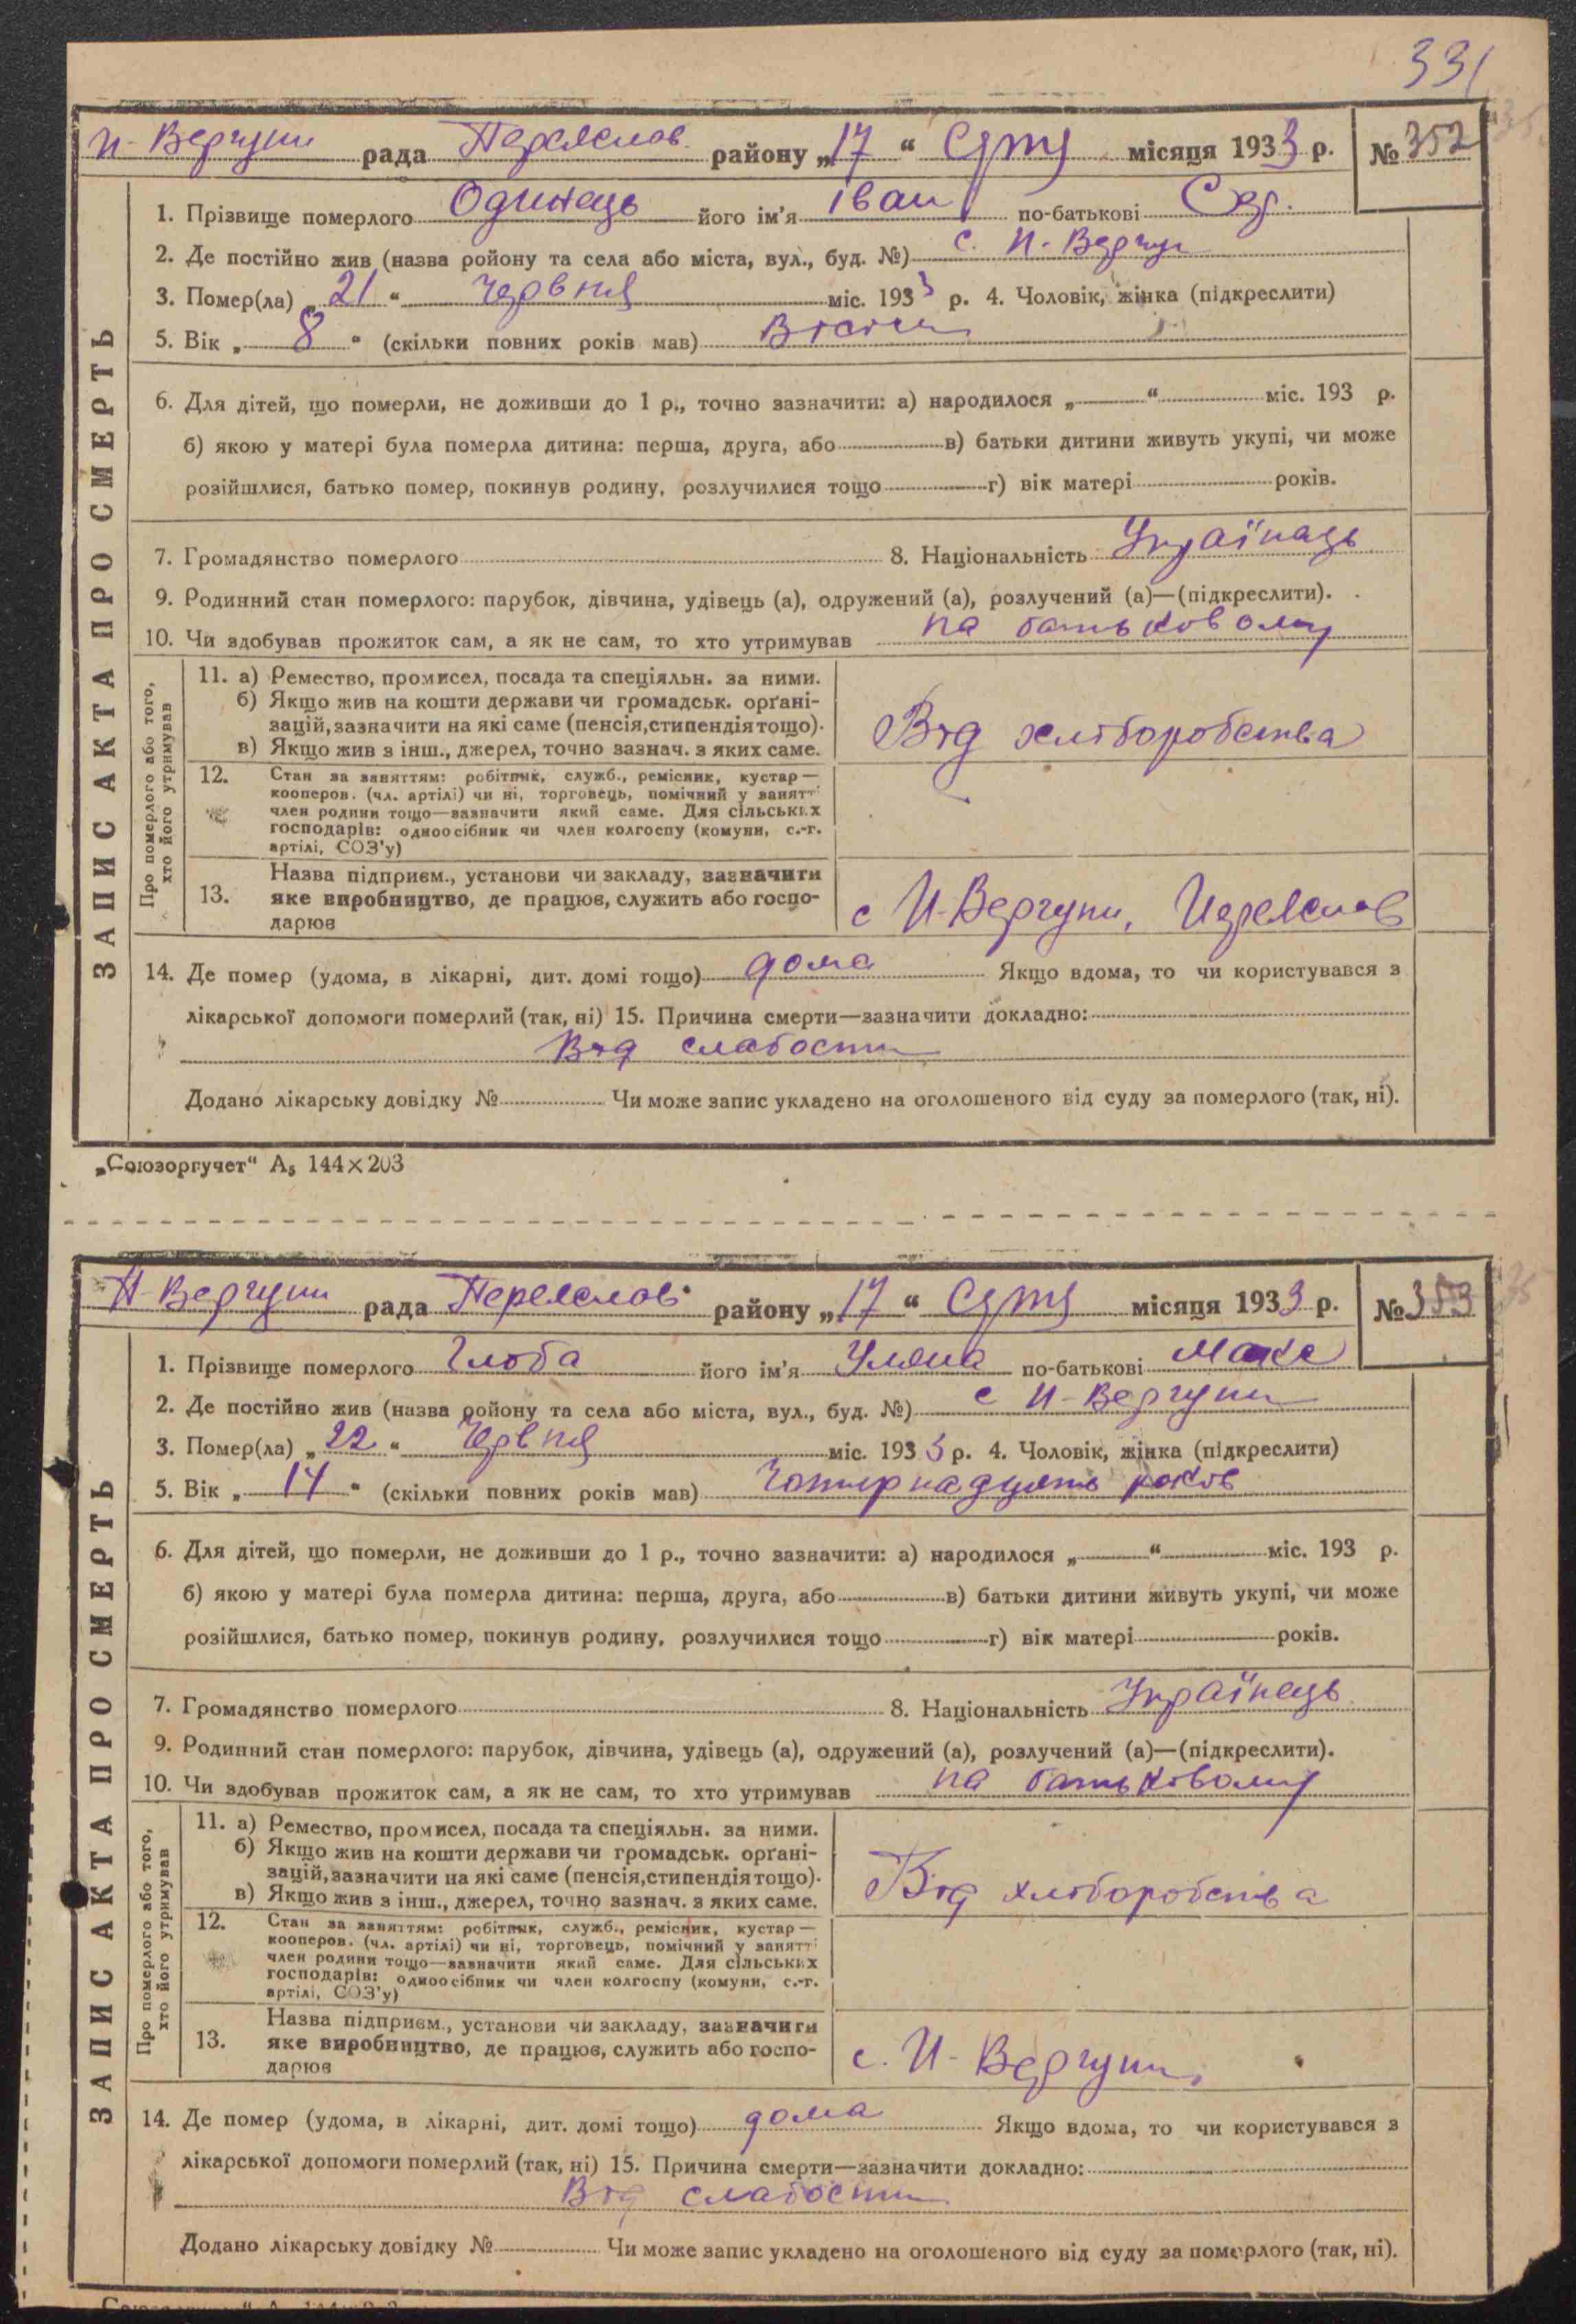 331
И-Вергуни рада Переяслов. району „17“ Сєрпня місяця 1933 р. № 352
1. Прізвище померлого Одинець його ім'я Іван по-батькові
2. Де постійно жив (назва ройону та села або міста, вул., буд. №) с. И-Вергун
3. Помер(ла) „21“ Червня міс. 1933 р. 4. Чоловік, жінка (підкреслити)
5. Вік „8“ (скільки повних років мав) Вісім
6. Для дітей, що померли, не доживши до 1 р., точно зазначити: а) народилося „ “ міс. 193 р.
б) якою у матері була померла дитина: перша, друга, або в) батьки дитини живуть укупі, чи може
розійшлися, батько помер, покинув родину, розлучилися тощо г) вік матері років.
7. Громадянство померлого 8. Національність Україець
9. Родинний стан померлого: парубок, дівчина, удівець (а), одружений (а), розлучений (а)—(підкреслити).
10. Чи здобував прожиток сам, а як не сам, то хто утримував на батьковому
ЗАПИС АКТА ПРО СМЕРТЬ
Про померлого або того, хто його утримував
11. а) Ремество, промисел, посада та спеціяльн. за ними.
б) Якщо жив на кошти держави чи громадськ. орґані-
зацій, зазначити на які саме (пенсія, стипендія тощо).
в) Якщо жив з інш., джерел, точно зазнач. з яких саме.
Від хліборобства
12. Стан за заняттям: робітник, служб., ремісник, кустар—
кооперов. (чл. артілі) чи ні, торговець, помічний у занятті
член родини тощо—зазначити який саме. Для сільських
господарів: одноосібник чи член колгоспу (комуни, с.-г.
артілі, СОЗ'у)
13. Назва підприєм., установи чи закладу, зазначити
яке виробництво, де працює, служить або госпо-
дарює
с И-Вергуни, Переяслов
14. Де помер (удома, в лікарні, дит. домі тощо) дома Якщо вдома, то чи користувався з
лікарської допомоги померлий (так, ні) 15. Причина смерти—зазначити докладно:
Від слабости
Додано лікарську довідку № Чи може запис укладено на оголошеного від суду за померлого (так, ні).
„Союзоргучет“ А5 144×203
И-Вергуни рада Переяслов району „17“ Сєрпня місяця 1933 р. № 353
1. Прізвище померлого Глоба його ім'я Уляна по-батькові
2. Де постійно жив (назва ройону та села або міста, вул., буд. №) с И-Вергуни
3. Помер(ла) „22“ Червня міс. 1933 р. 4. Чоловік, жінка (підкреслити)
5. Вік „14“ (скільки повних років мав) Чотирнадцять років
6. Для дітей, що померли, не доживши до 1 р., точно зазначити: а) народилося „ “ міс. 193 р.
б) якою у матері була померла дитина: перша, друга, або в) батьки дитини живуть укупі, чи може
розійшлися, батько помер, покинув родину, розлучилися тощо г) вік матері років.
7. Громадянство померлого 8. Національність Українець
9. Родинний стан померлого: парубок, дівчина, удівець (а), одружений (а), розлучений (а)—(підкреслити).
10. Чи здобував прожиток сам, а як не сам, то хто утримував на батьковому
ЗАПИС АКТА ПРО СМЕРТЬ
Про померлого або того, хто його утримував
11. а) Ремество, промисел, посада та спеціяльн. за ними.
б) Якщо жив на кошти держави чи громадськ. орґані-
зацій, зазначити на які саме (пенсія, стипендія тощо).
в) Якщо жив з інш., джерел, точно зазнач. з яких саме.
Від хліборобства
12. Стан за заняттям: робітник, служб., ремісник, кустар—
кооперов. (чл. артілі) чи ні, торговець, помічний у занятті
член родини тощо—зазначити який саме. Для сільських
господарів: одноосібник чи член колгоспу (комуни, с.-г.
артілі, СОЗ'у)
13. Назва підприєм., установи чи закладу, зазначити
яке виробництво, де працює, служить або госпо-
дарює
с. И-Вергуни,
14. Де помер (удома, в лікарні, дит. домі тощо) дома Якщо вдома, то чи користувався з
лікарської допомоги померлий (так, ні) 15. Причина смерти—зазначити докладно:
Від слабости
Додано лікарську довідку № Чи може запис укладено на оголошеного від суду за померлого (так, ні).